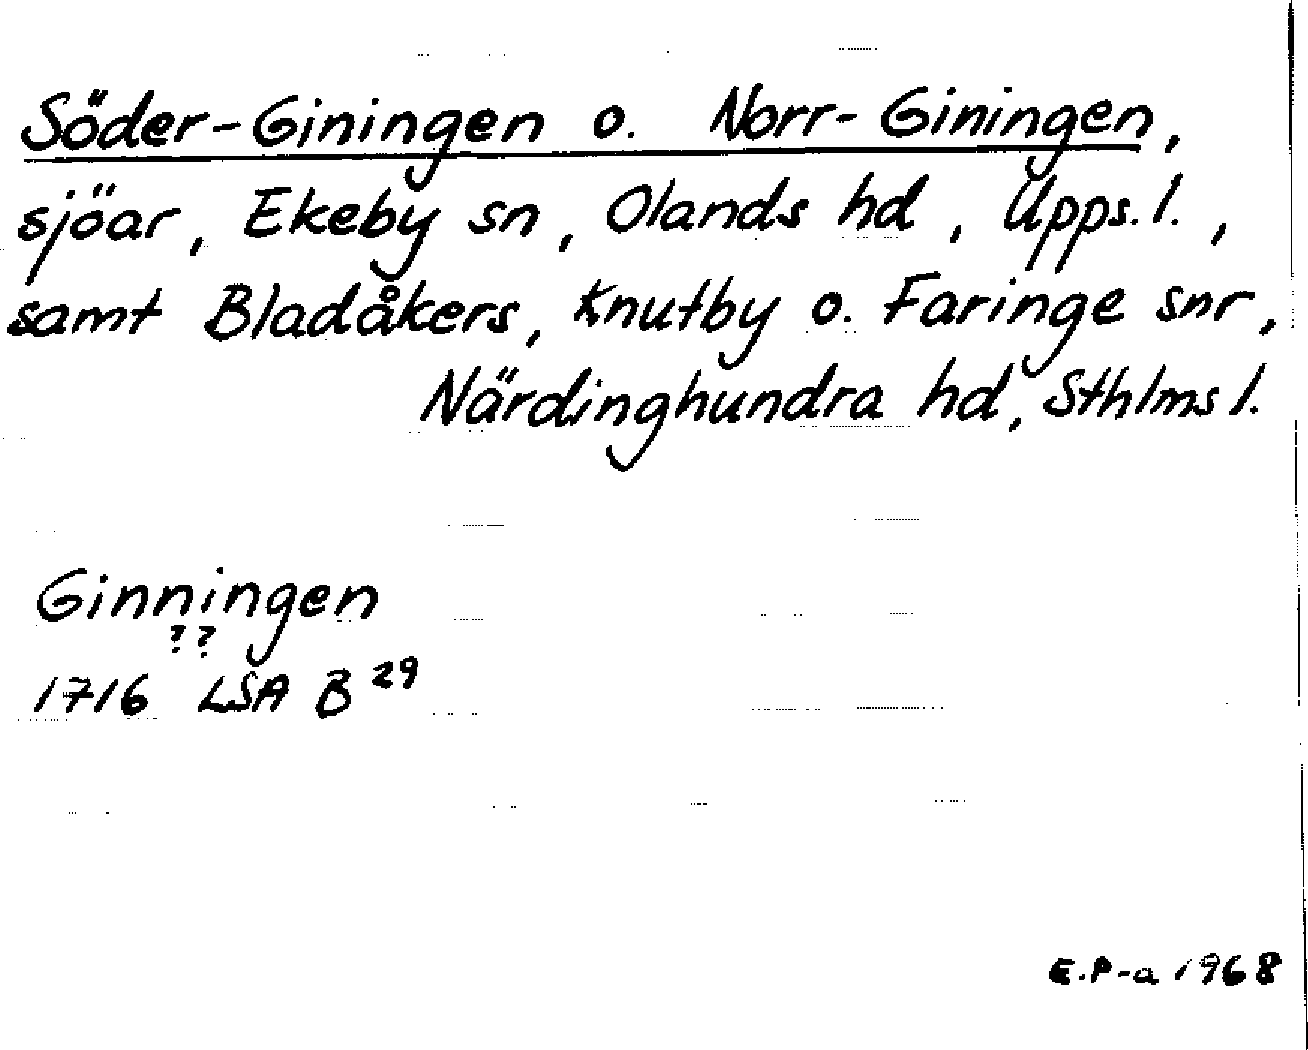 Söder-Giningen o. Norr-Giningen,
sjöar, Ekeby sn, Olands hd, Upps. l.,
samt Bladåkers, Knutby o. Faringe snr,
Närdinghundra hd, Sthlms l.
Ginningen
? ?
1716 LSA B 29
E.P-a 1968